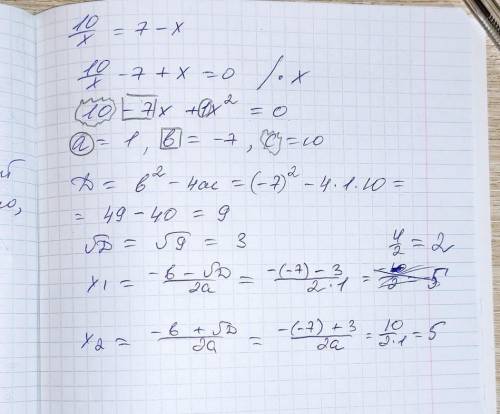 10/x = 7 - x
10/x - 7 + x = 0 / · x
10 - 7x + 1x² = 0
a = 1, b = -7, c = 10
D = b² - 4ac = (-7)² - 4·1·10 =
= 49 - 40 = 9
√D = √9 = 3
4/2 = 2
x₁ = (-b - √D)/2a = (-(-7) - 3)/(2·1) =
x₂ = (-b + √D)/2a = (-(-7) + 3)/2a = 10/(2·1) = 5